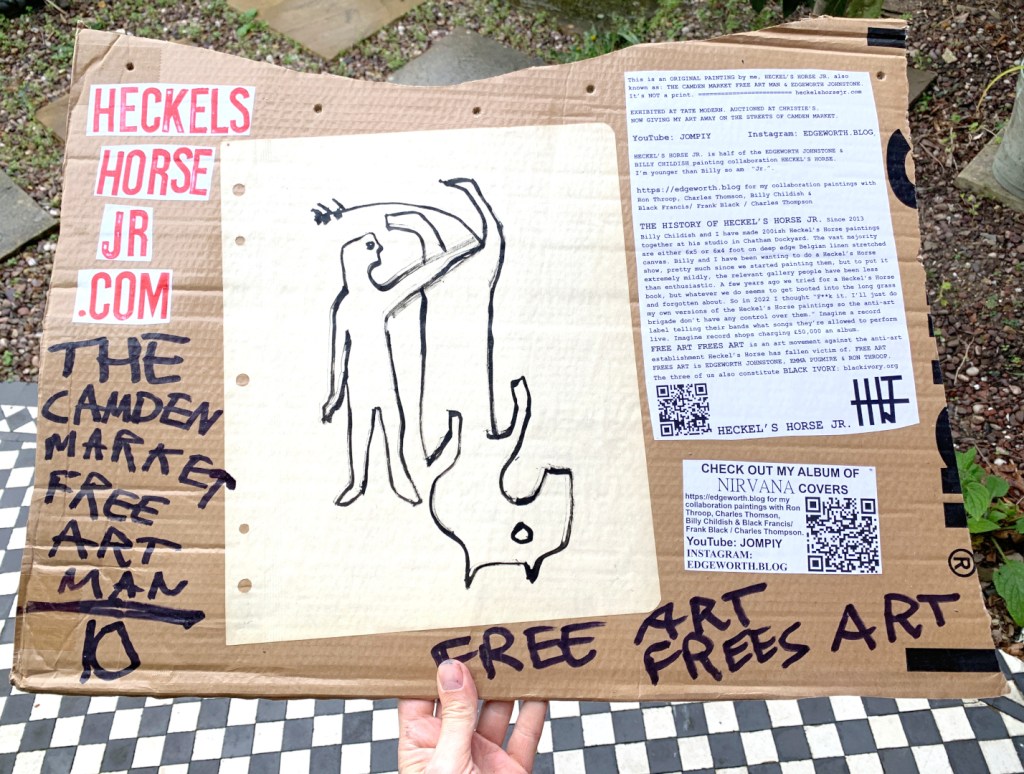 HECKELS
HORSE
JR
.COM
THE
CAMDEN
MARKET
FREE
ART
MAN
This is an ORIGINAL PAINTING by me, HECKEL'S HORSE JR. also
known as: THE CAMDEN MARKET FREE ART MAN & EDGEWORTH JOHNSTONE.
It's NOT a print. ========================= heckelshorsejr.com
EXHIBITED AT TATE MODERN. AUCTIONED AT CHRISTIE'S.
NOW GIVING MY ART AWAY ON THE STREETS OF CAMDEN MARKET.
YouTube: JOMPIY Instagram: EDGEWORTH.BLOG
HECKEL'S HORSE JR. is half of the EDGEWORTH JOHNSTONE &
BILLY CHILDISH painting collaboration HECKEL'S HORSE.
I'm younger than Billy so am "Jr."
https://edgeworth.blog for my collaboration paintings with
Ron Throop, Charles Thomson, Billy Childish &
Black Francis/ Frank Black / Charles Thompson
THE HISTORY OF HECKEL'S HORSE JR. Since 2013
Billy Childish and I have made 200ish Heckel's Horse paintings
together at his studio in Chatham Dockyard. The vast majority
are either 6x5 or 6x4 foot on deep edge Belgian linen stretched
canvas. Billy and I have been wanting to do a Heckel's Horse
show, pretty much since we started painting them, but to put it
extremely mildly, the relevant gallery people have been less
than enthusiastic. A few years ago we tried for a Heckel's Horse
book, but whatever we do seems to get booted into the long grass
and forgotten about. So in 2022 I thought "F**k it, I'll just do
my own versions of the Heckel's Horse paintings so the anti-art
brigade don't have any control over them." Imagine a record
label telling their bands what songs they're allowed to perform
live. Imagine record shops charging £50,000 an album.
FREE ART FREES ART is an art movement against the anti-art
establishment Heckel's Horse has fallen victim of. FREE ART
FREES is EDGEWORTH JOHNSTONE, EMMA PUGMIRE & RON THROOP.
The three of us also constitute BLACK IVORY: blackivory.org
HECKEL'S HORSE JR.
CHECK OUT MY ALBUM OF
NIRVANA COVERS
https://edgeworth.blog for my
collaboration paintings with Ron
Throop, Charles Thomson,
Billy Childish & Black Francis/
Frank Black / Charles Thompson.
YouTube: JOMPIY
INSTAGRAM:
EDGEWORTH.BLOG
®
FREE ART
FREES ART